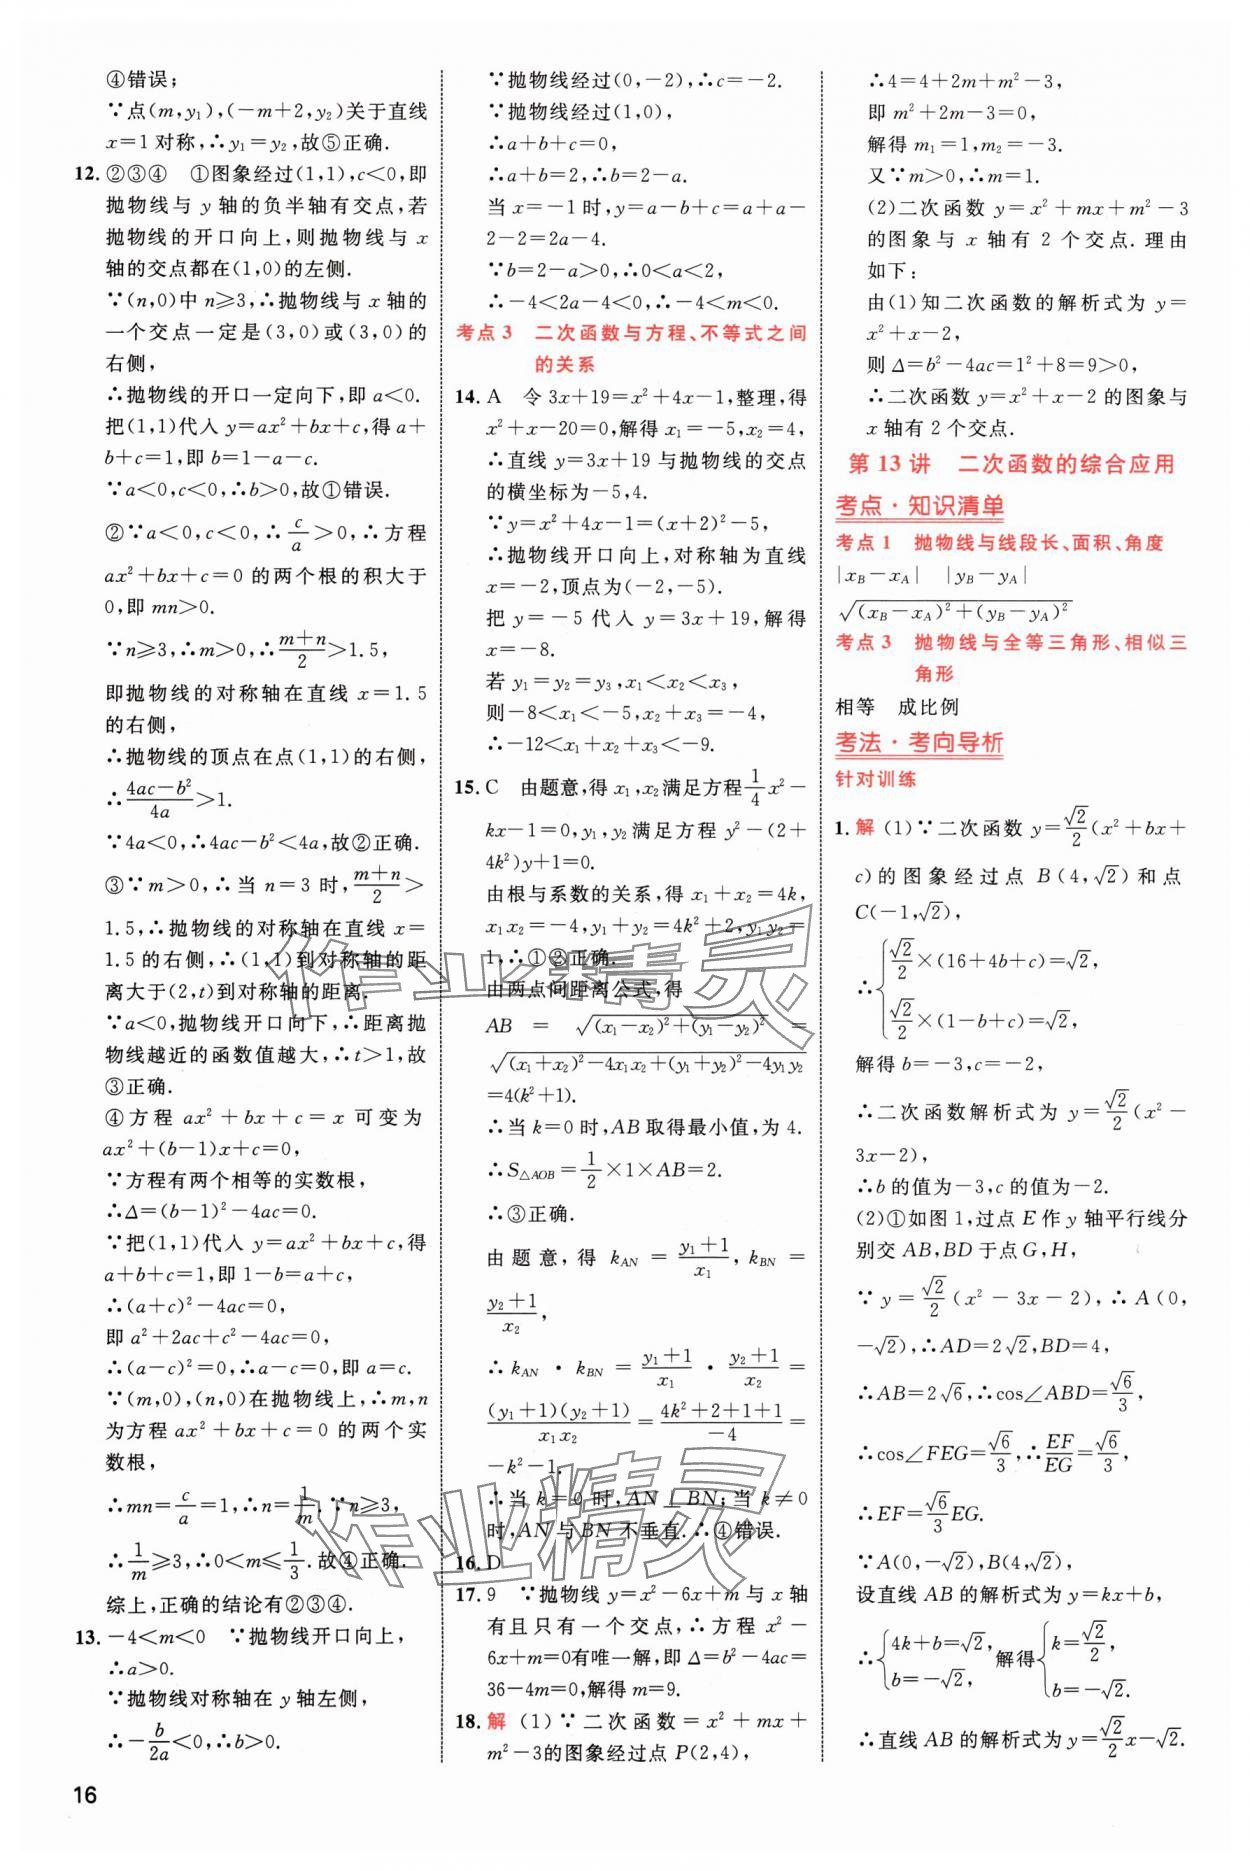 ④错误;
∵点(m,y₁),(-m+2,y₂)关于直线
x=1对称,∴y₁=y₂,故⑤正确.
12. ②③④ ①图象经过(1,1),c<0,即
抛物线与 y 轴的负半轴有交点,若
抛物线的开口向上,则抛物线与 x
轴的交点都在(1,0)的左侧.
∵(n,0)中 n≥3,∴抛物线与 x 轴的
一个交点一定是(3,0)或(3,0)的
右侧,
∴抛物线的开口一定向下,即 a<0.
把(1,1)代入 y=ax²+bx+c,得 a+
b+c=1,即 b=1-a-c.
∵a<0,c<0,∴b>0,故①错误.
②∵a<0,c<0,∴c/a>0,∴方程
ax²+bx+c=0 的两个根的积大于
0,即 mn>0.
∵n≥3,∴m>0,∴(m+n)/2>1.5,
即抛物线的对称轴在直线 x=1.5
的右侧,
∴抛物线的顶点在点(1,1)的右侧,
∴(4ac-b²)/4a>1.
∵4a<0,∴4ac-b²<4a,故②正确.
③∵m>0,∴当 n=3 时,(m+n)/2>
1.5,∴抛物线的对称轴在直线 x=
1.5 的右侧,∴(1,1)到对称轴的距
离大于(2,t)到对称轴的距离.
∵a<0,抛物线开口向下,∴距离抛
物线越近的函数值越大,∴t>1,故
③正确.
④方程 ax²+bx+c=x 可变为
ax²+(b-1)x+c=0,
∵方程有两个相等的实数根,
∴Δ=(b-1)²-4ac=0.
∵把(1,1)代入 y=ax²+bx+c,得
a+b+c=1,即 1-b=a+c,
∴(a+c)²-4ac=0,
即 a²+2ac+c²-4ac=0,
∴(a-c)²=0,∴a-c=0,即 a=c.
∵(m,0),(n,0)在抛物线上,∴m,n
为方程 ax²+bx+c=0 的两个实
数根,
∴mn=c/a=1,∴n=1/m,∵n≥3,
∴1/m≥3,∴0<m≤1/3.故④正确.
综上,正确的结论有②③④.
13. -4<m<0 ∵抛物线开口向上,
∴a>0.
∵抛物线对称轴在 y 轴左侧,
∴-b/2a<0,∴b>0.
16
∵抛物线经过(0,-2),∴c=-2.
∵抛物线经过(1,0),
∴a+b+c=0,
∴a+b=2,∴b=2-a.
当 x=-1 时,y=a-b+c=a+a-
2-2=2a-4.
∵b=2-a>0,∴0<a<2,
∴-4<2a-4<0,∴-4<m<0.
考点 3 二次函数与方程、不等式之间
的关系
14. A 令 3x+19=x²+4x-1,整理,得
x²+x-20=0,解得 x₁=-5,x₂=4,
∴直线 y=3x+19 与抛物线的交点
的横坐标为-5,4.
∵y=x²+4x-1=(x+2)²-5,
∴抛物线开口向上,对称轴为直线
x=-2,顶点为(-2,-5).
把 y=-5 代入 y=3x+19,解得
x=-8.
若 y₁=y₂=y₃,x₁<x₂<x₃,
则-8<x₁<-5,x₂+x₃=-4,
∴-12<x₁+x₂+x₃<-9.
15. C 由题意,得 x₁,x₂满足方程1/4x²-
kx-1=0,y₁,y₂满足方程 y²-(2+
4k²)y+1=0.
由根与系数的关系,得 x₁+x₂=4k,
x₁x₂=-4,y₁+y₂=4k²+2,y₁y₂=
1,∴①②正确.
由两点间距离公式,得
AB = √((x₁-x₂)²+(y₁-y₂)²) =
√((x₁+x₂)²-4x₁x₂+(y₁+y₂)²-4y₁y₂)
=4(k²+1).
∴当 k=0 时,AB 取得最小值,为 4.
∴S△AOB=1/2×1×AB=2.
∴③正确.
由题意,得 k_AN = (y₁+1)/x₁, k_BN =
(y₂+1)/x₂,
∴ k_AN · k_BN = (y₁+1)/x₁ · (y₂+1)/x₂ =
(y₁+1)(y₂+1)/x₁x₂ = (4k²+2+1+1)/-4 =
-k²-1.
∴当 k=0 时,AN⊥BN;当 k≠0
时,AN 与 BN 不垂直.∴④错误.
16. D
17. 9 ∵抛物线 y=x²-6x+m 与 x 轴
有且只有一个交点,∴方程 x²-
6x+m=0有唯一解,即 Δ=b²-4ac=
36-4m=0,解得 m=9.
18. 解 (1)∵二次函数=x²+mx+
m²-3的图象经过点 P(2,4),
∴4=4+2m+m²-3,
即 m²+2m-3=0,
解得 m₁=1,m₂=-3.
又∵m>0,∴m=1.
(2)二次函数 y=x²+mx+m²-3
的图象与 x 轴有 2 个交点.理由
如下:
由(1)知二次函数的解析式为 y=
x²+x-2,
则 Δ=b²-4ac=1²+8=9>0,
∴二次函数 y=x²+x-2 的图象与
x 轴有 2 个交点.
第 13 讲 二次函数的综合应用
考点·知识清单
考点 1 抛物线与线段长、面积、角度
|x_B-x_A| |y_B-y_A|
√((x_B-x_A)²+(y_B-y_A)²)
考点 3 抛物线与全等三角形、相似三
角形
相等 成比例
考法·考向导析
针对训练
1. 解 (1)∵二次函数 y=√2/2(x²+bx+
c)的图象经过点 B(4,√2)和点
C(-1,√2),
∴{√2/2×(16+4b+c)=√2,
√2/2×(1-b+c)=√2,
解得 b=-3,c=-2,
∴二次函数解析式为 y=√2/2(x²-
3x-2),
∴b 的值为-3,c的值为-2.
(2)①如图 1,过点 E 作 y 轴平行线分
别交 AB,BD 于点 G,H,
∵y=√2/2(x²-3x-2),∴A(0,
-√2),∴AD=2√2,BD=4,
∴AB=2√6,∴cos∠ABD=√6/3,
∴cos∠FEG=√6/3,∴EF/EG=√6/3,
∴EF=√6/3EG.
∵A(0,-√2),B(4,√2),
设直线 AB 的解析式为 y=kx+b,
∴{4k+b=√2, b=-√2, 解得{k=√2/2, b=-√2.
∴直线 AB 的解析式为 y=√2/2x-√2.
作业精灵
作业精灵